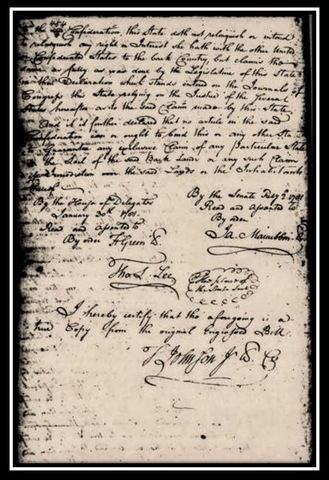 454
the Confederation, this State doth not relinquish or intend
relinquish any right or Interest she hath with the other United
Confederated States to the back Country, but claims the
same as fully as was done by the Legislature of this State
in their Declaration which stands entered on the Journals of
Congress this State relying on the Justice of the several
States hereafter as to the said Claim made by this State
And it is further declared that no article in the said
Confederation can or ought to bind this or any other State
to Guarantee any exclusive Claim of any particular State
to the Soil of the said Back Lands or any such Claim
of Jurisdiction over the said Lands or the Inhabitants
thereof
By the House of Delegates
January 30th 1781.
Read and assented to
By order F Green
By the Senate Feby 2d 1781
Read and assented to
By order
Ja. Maccubbin
Tho S. Lee
The place of
the State Seal
I hereby certify that the aforegoing is a
true Copy from the original Engrossed Bill.
T Johnson Jr